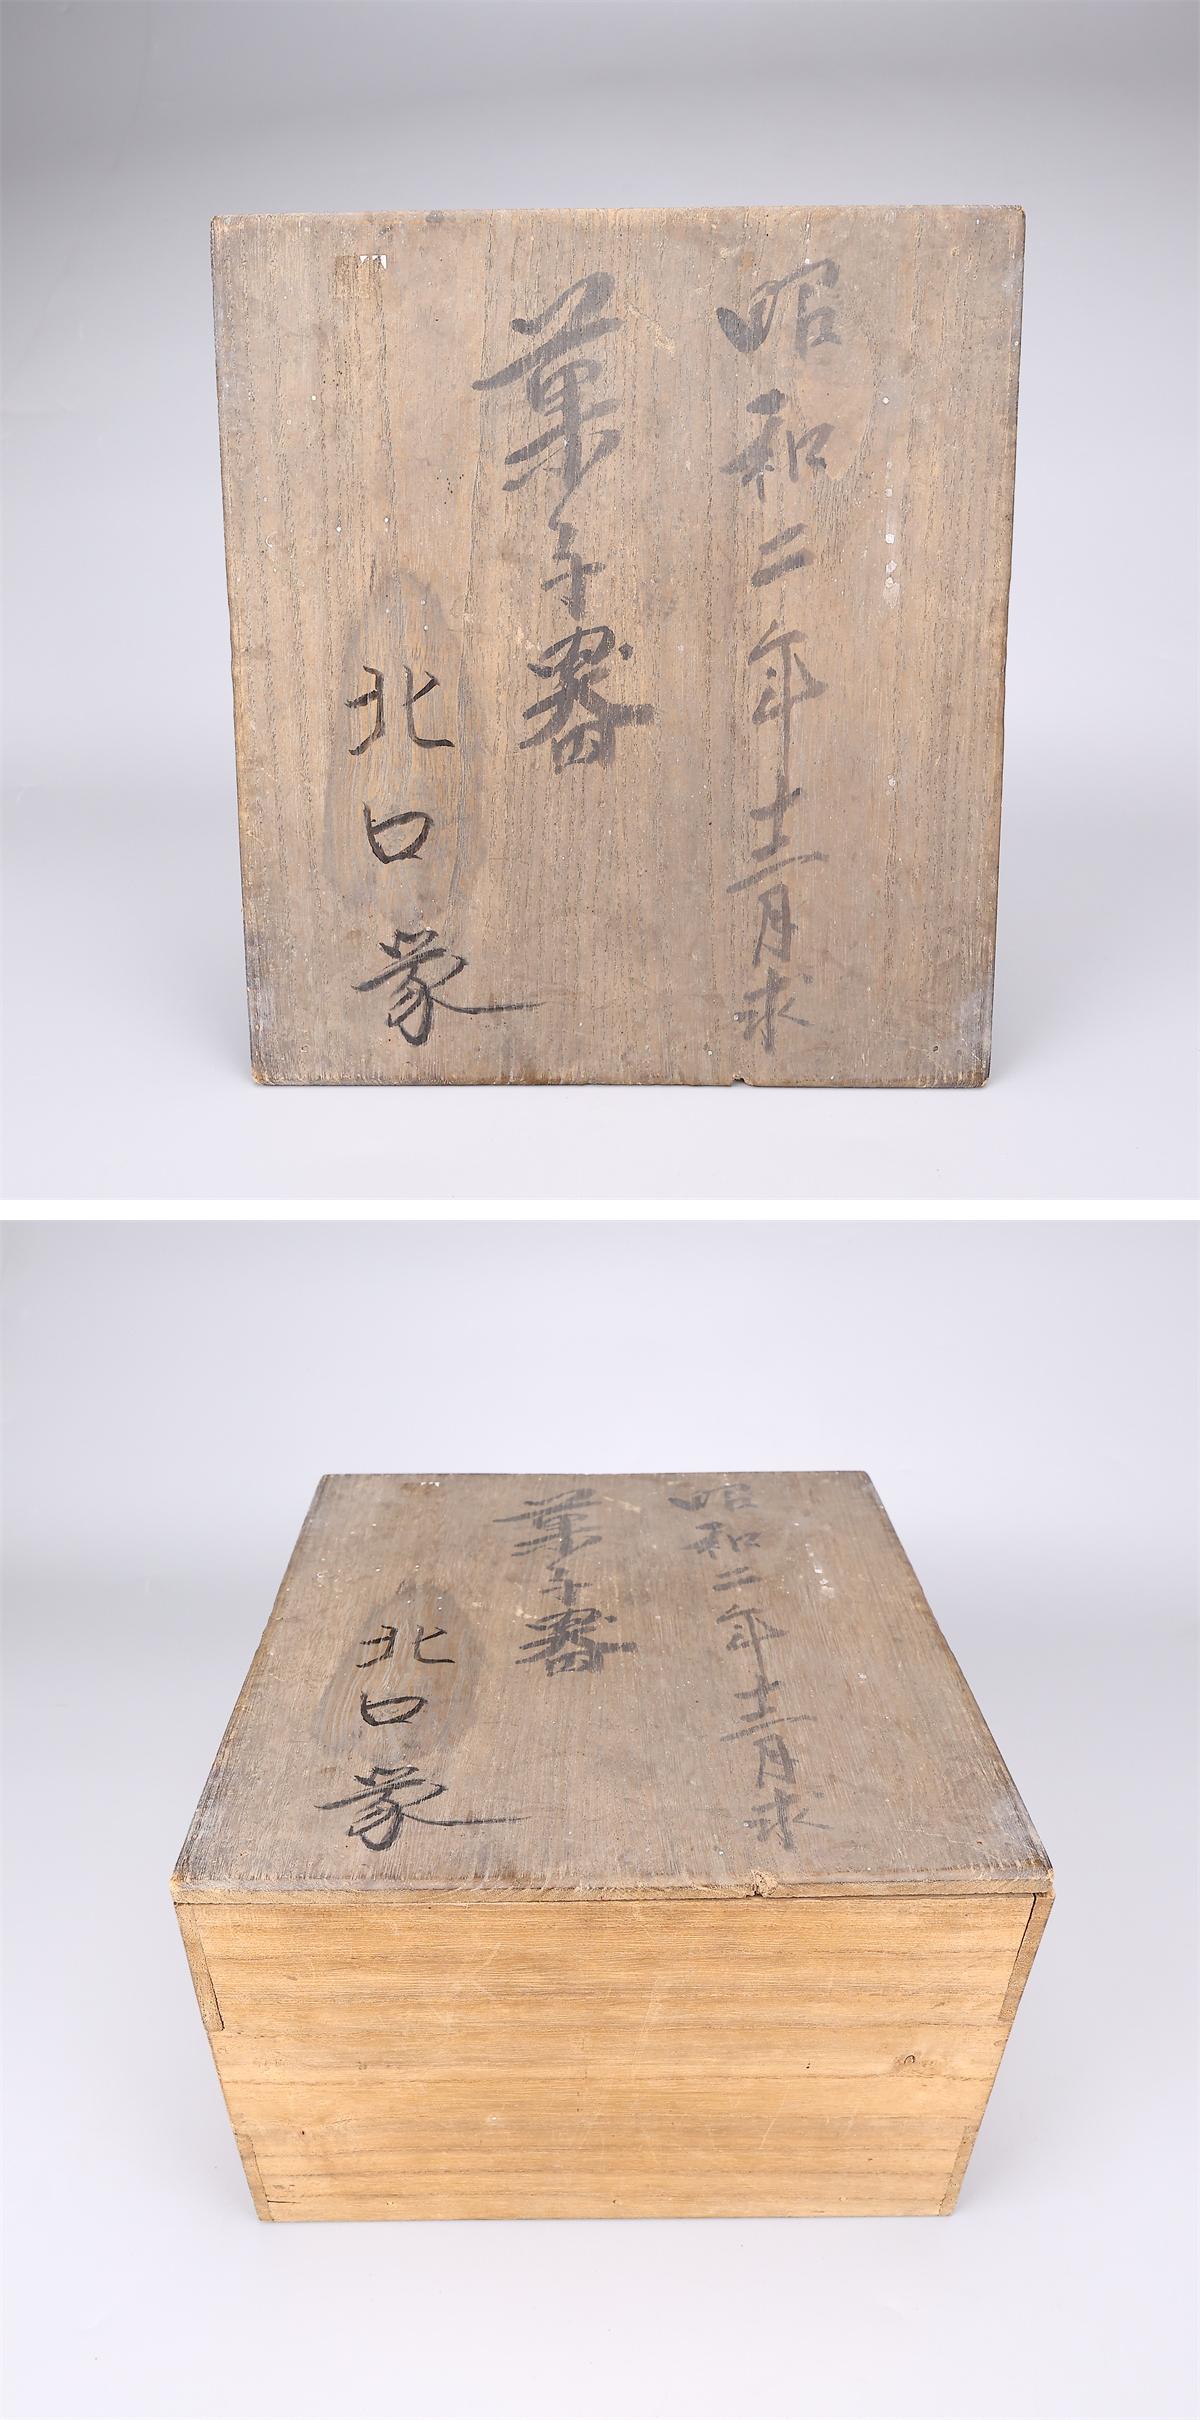 昭和二年十二月求
菓子器
北口家
昭和二年十二月求
菓子器
北口家